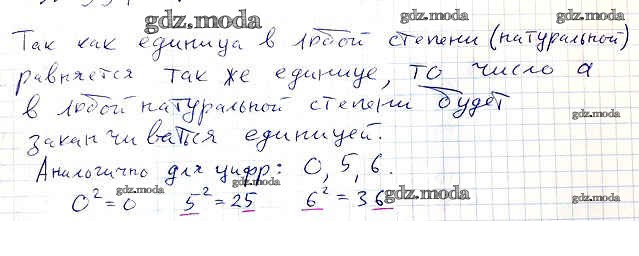 gdz.moda gdz.moda gdz.moda
Так как единица в любой степени (натуральной)
равняется так же единице, то число а
в любой натуральной степени будет
gdz.moda
заканчиваться единицей.
Аналогично для цифр: 0, 5, 6.
gdz.moda gdz.moda gdz.moda gdz.moda
0² = 0 5² = 25 6² = 36
gdz.moda gdz.moda